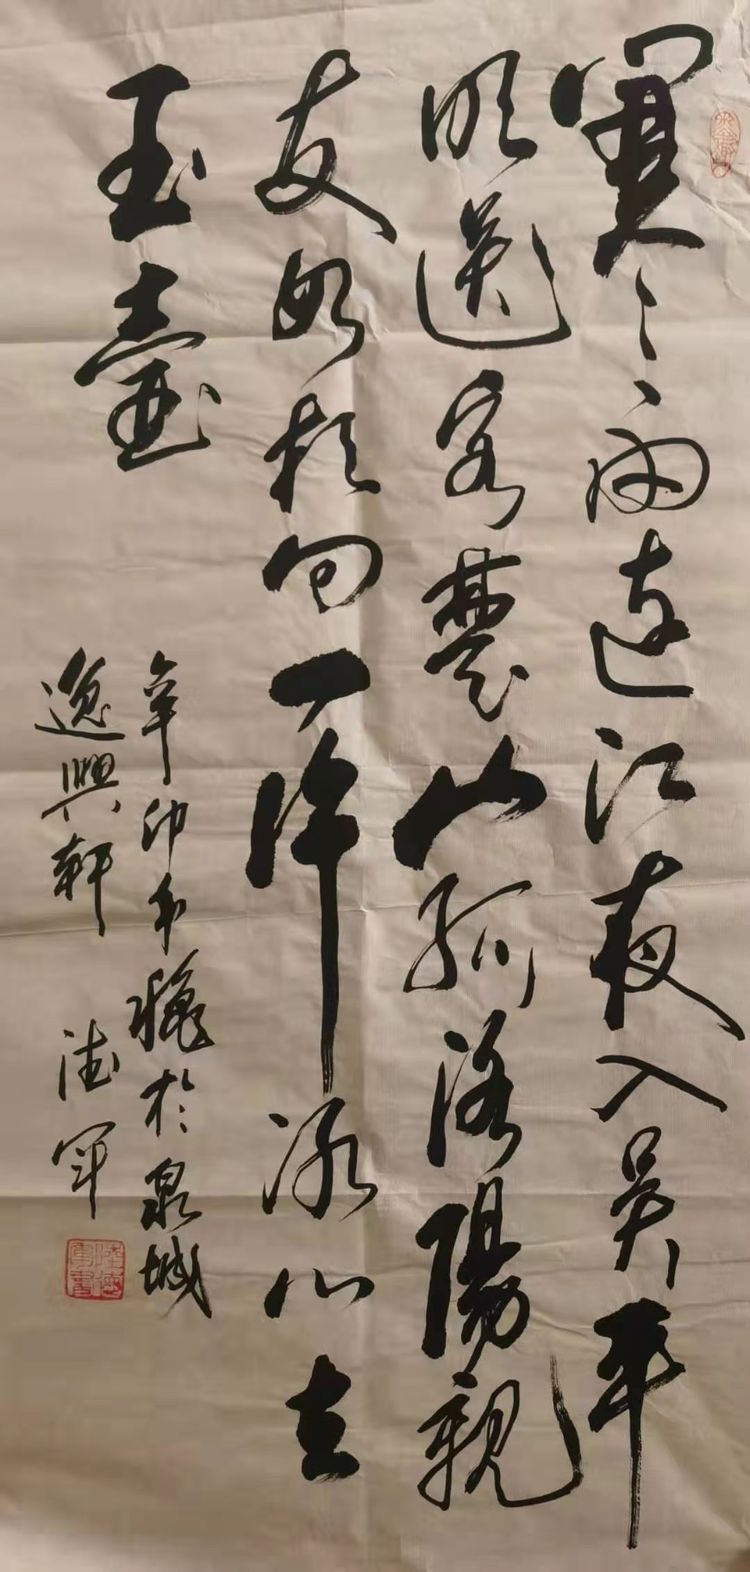 寒雨连江夜入吴平
明送客楚山孤洛陽親
友如相问一片冰心在
玉壺
辛卯年穐於泉城
逸興軒 德軍